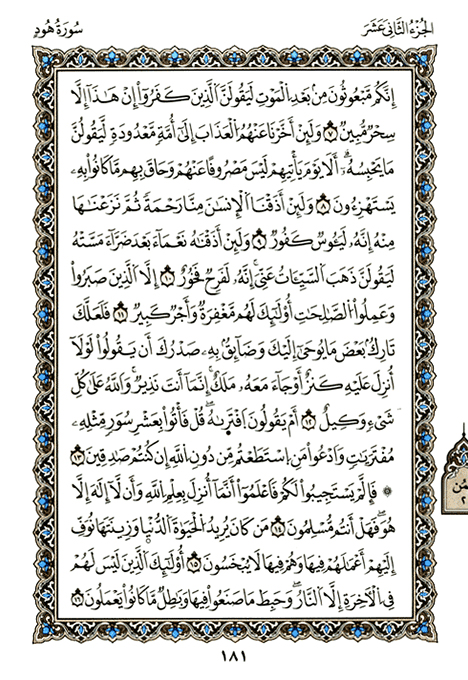 الجُزْءُ الثَّانِي عَشَرَ
سُورَةُ هُودٍ
إِنَّكُم مَّبْعُوثُونَ مِنۢ بَعْدِ الْمَوْتِ لَيَقُولَنَّ الَّذِينَ كَفَرُوٓا۟ إِنْ هَٰذَآ إِلَّا
سِحْرٌ مُّبِينٌ ٧ وَلَئِنْ أَخَّرْنَا عَنْهُمُ الْعَذَابَ إِلَىٰٓ أُمَّةٍ مَّعْدُودَةٍ لَّيَقُولُنَّ
مَا يَحْبِسُهُۥٓ ۗ أَلَا يَوْمَ يَأْتِيهِمْ لَيْسَ مَصْرُوفًا عَنْهُمْ وَحَاقَ بِهِم مَّا كَانُوا۟ بِهِۦ
يَسْتَهْزِءُونَ ٨ وَلَئِنْ أَذَقْنَا الْإِنسَٰنَ مِنَّا رَحْمَةً ثُمَّ نَزَعْنَٰهَا
مِنْهُ إِنَّهُۥ لَيَـُٔوسٌ كَفُورٌ ٩ وَلَئِنْ أَذَقْنَٰهُ نَعْمَآءَ بَعْدَ ضَرَّآءَ مَسَّتْهُ
لَيَقُولَنَّ ذَهَبَ السَّيِّـَٔاتُ عَنِّىٓ ۚ إِنَّهُۥ لَفَرِحٌ فَخُورٌ ١٠ إِلَّا الَّذِينَ صَبَرُوا۟
وَعَمِلُوا۟ الصَّٰلِحَٰتِ أُو۟لَٰٓئِكَ لَهُم مَّغْفِرَةٌ وَأَجْرٌ كَبِيرٌ ١١ فَلَعَلَّكَ
تَارِكٌۢ بَعْضَ مَا يُوحَىٰٓ إِلَيْكَ وَضَآئِقٌۢ بِهِۦ صَدْرُكَ أَن يَقُولُوا۟ لَوْلَآ
أُنزِلَ عَلَيْهِ كَنزٌ أَوْ جَآءَ مَعَهُۥ مَلَكٌ ۚ إِنَّمَآ أَنتَ نَذِيرٌ ۚ وَاللَّهُ عَلَىٰ كُلِّ
شَىْءٍ وَكِيلٌ ١٢ أَمْ يَقُولُونَ افْتَرَىٰهُ ۖ قُلْ فَأْتُوا۟ بِعَشْرِ سُوَرٍ مِّثْلِهِۦ
مُفْتَرَيَٰتٍ وَادْعُوا۟ مَنِ اسْتَطَعْتُم مِّن دُونِ اللَّهِ إِن كُنتُمْ صَٰدِقِينَ ١٣
۞ فَإِلَّمْ يَسْتَجِيبُوا۟ لَكُمْ فَاعْلَمُوٓا۟ أَنَّمَآ أُنزِلَ بِعِلْمِ اللَّهِ وَأَن لَّآ إِلَٰهَ إِلَّا
هُوَ ۖ فَهَلْ أَنتُم مُّسْلِمُونَ ١٤ مَن كَانَ يُرِيدُ الْحَيَوٰةَ الدُّنْيَا وَزِينَتَهَا نُوَفِّ
إِلَيْهِمْ أَعْمَٰلَهُمْ فِيهَا وَهُمْ فِيهَا لَا يُبْخَسُونَ ١٥ أُو۟لَٰٓئِكَ الَّذِينَ لَيْسَ لَهُمْ
فِى الْـَٔاخِرَةِ إِلَّا النَّارُ ۖ وَحَبِطَ مَا صَنَعُوا۟ فِيهَا وَبَٰطِلٌ مَّا كَانُوا۟ يَعْمَلُونَ ١٦
١٨١